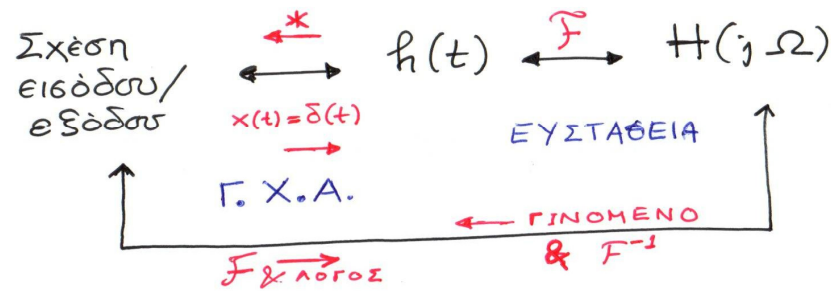 *
Σχέση
εισόδου/
εξόδου
h(t)
F
H(jΩ)
x(t)=δ(t)
ΕΥΣΤΑΘΕΙΑ
Γ.Χ.Α.
ΓΙΝΟΜΕΝΟ
& F⁻¹
F & ΛΟΓΟΣ